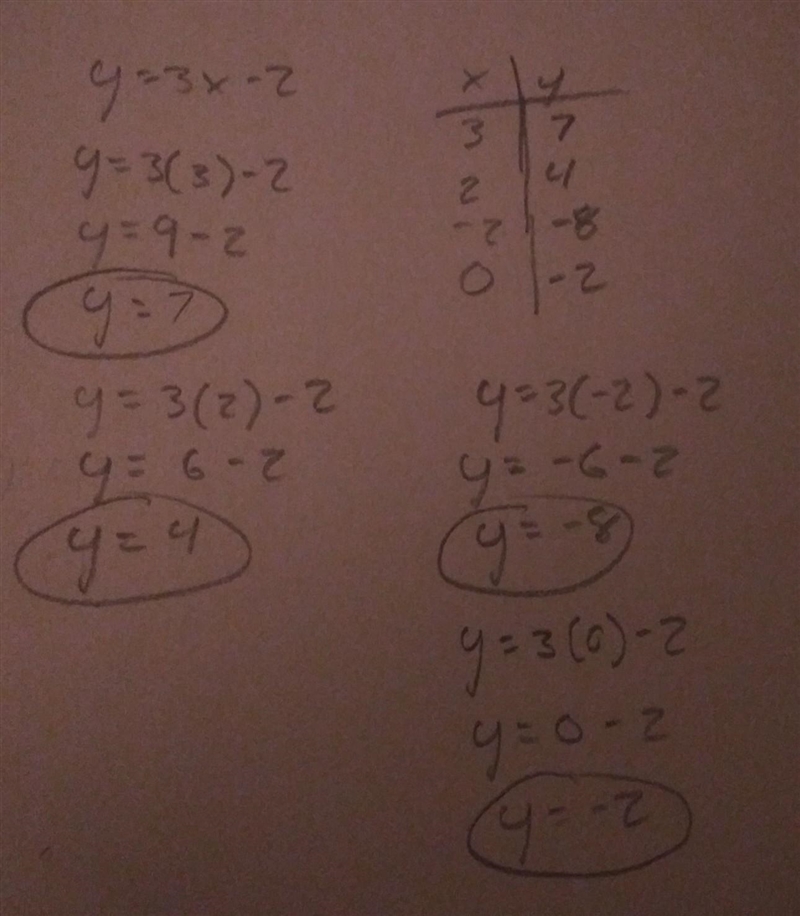 y=3x-2
y=3(3)-2
y=9-2
y=7
y=3(2)-2
y=6-2
y=4
x y
3 7
2 4
-2 -8
0 -2
y=3(-2)-2
y=-6-2
y=-8
y=3(0)-2
y=0-2
y=-2